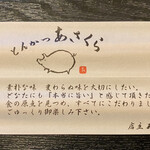 とんかつ あさくら
素朴な味 変わらぬ味を大切にしたい。
どなたにも「本当に旨い」と感じて頂きた
食の原点を見つめ、すべてにこだわりまし
ごゆっくり御楽しみ下さい。
店主